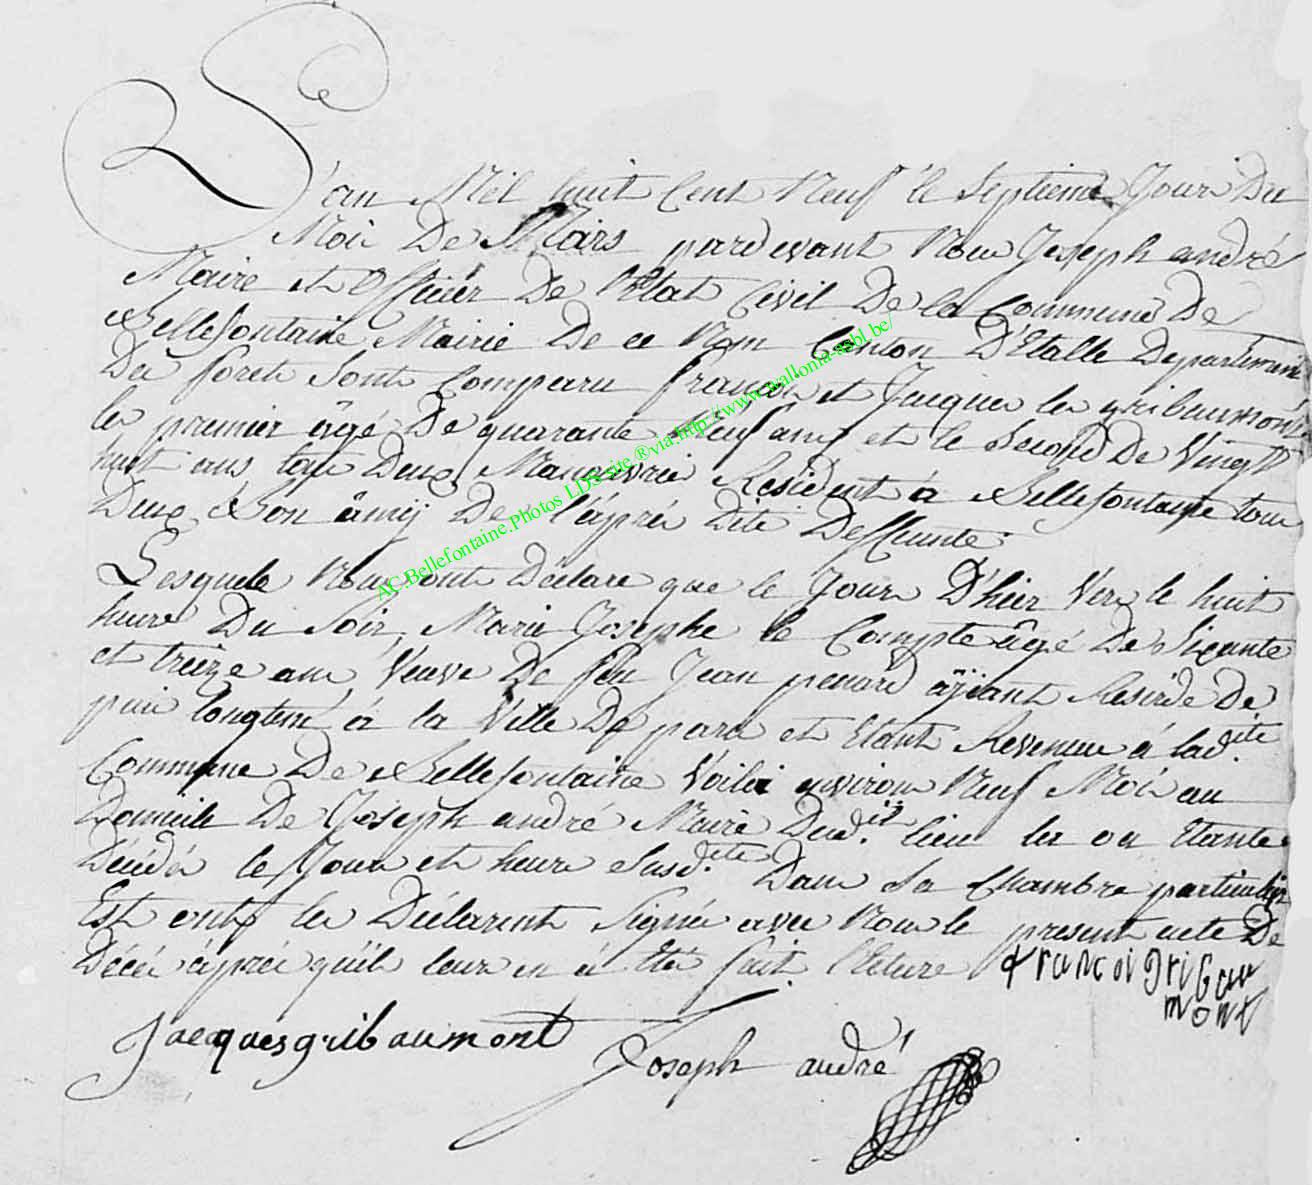 L'an Mil huit Cent Neuf le Septieme Jour du
Mois De Mars pardevant Nous Joseph andré
Maire et Officier De l'Etat Civil De la Commune De
Bellefontaine Mairie De ce Nom Canton D'Etalle Departement
Des forets Sont Comparu françois et Jacques les gribaumont
le premier âgé De quarante Neuf ans et le Second De Vingt
huit ans tous Deux Manouvrié Résident á Bellefontaine tous
Deux Bon âmij De l'áprés Dite Deffunte
Lesquels Nous ont Déclaré que le Jour D'hier Vers le huit
heure Du Soir, Marie Josephe le Compte âgé De Sixante
et treize ans Veuve De feu Jean penard äÿiant Résidé De
puis longtems á la Ville De paris et Etant Revenue á lad.ite
Commune De Bellefontaine Voila environs Neuf Mois au
Domicile De Joseph andré Maire Dud.it lieu la ou Etante
Décédée le Jour et heure Susd.ite Dans Sa Chambre particulier
Est ont les Déclarent Signés avec Nous le present acte De
Décés áprés qu'il leur en á Eté fait lecture
francoi griBau
mont
Jacques gribaumont
Joseph andré
AC.Bellefontaine.Photos LDS-site ®via:http://www.wallonia-asbl.be/